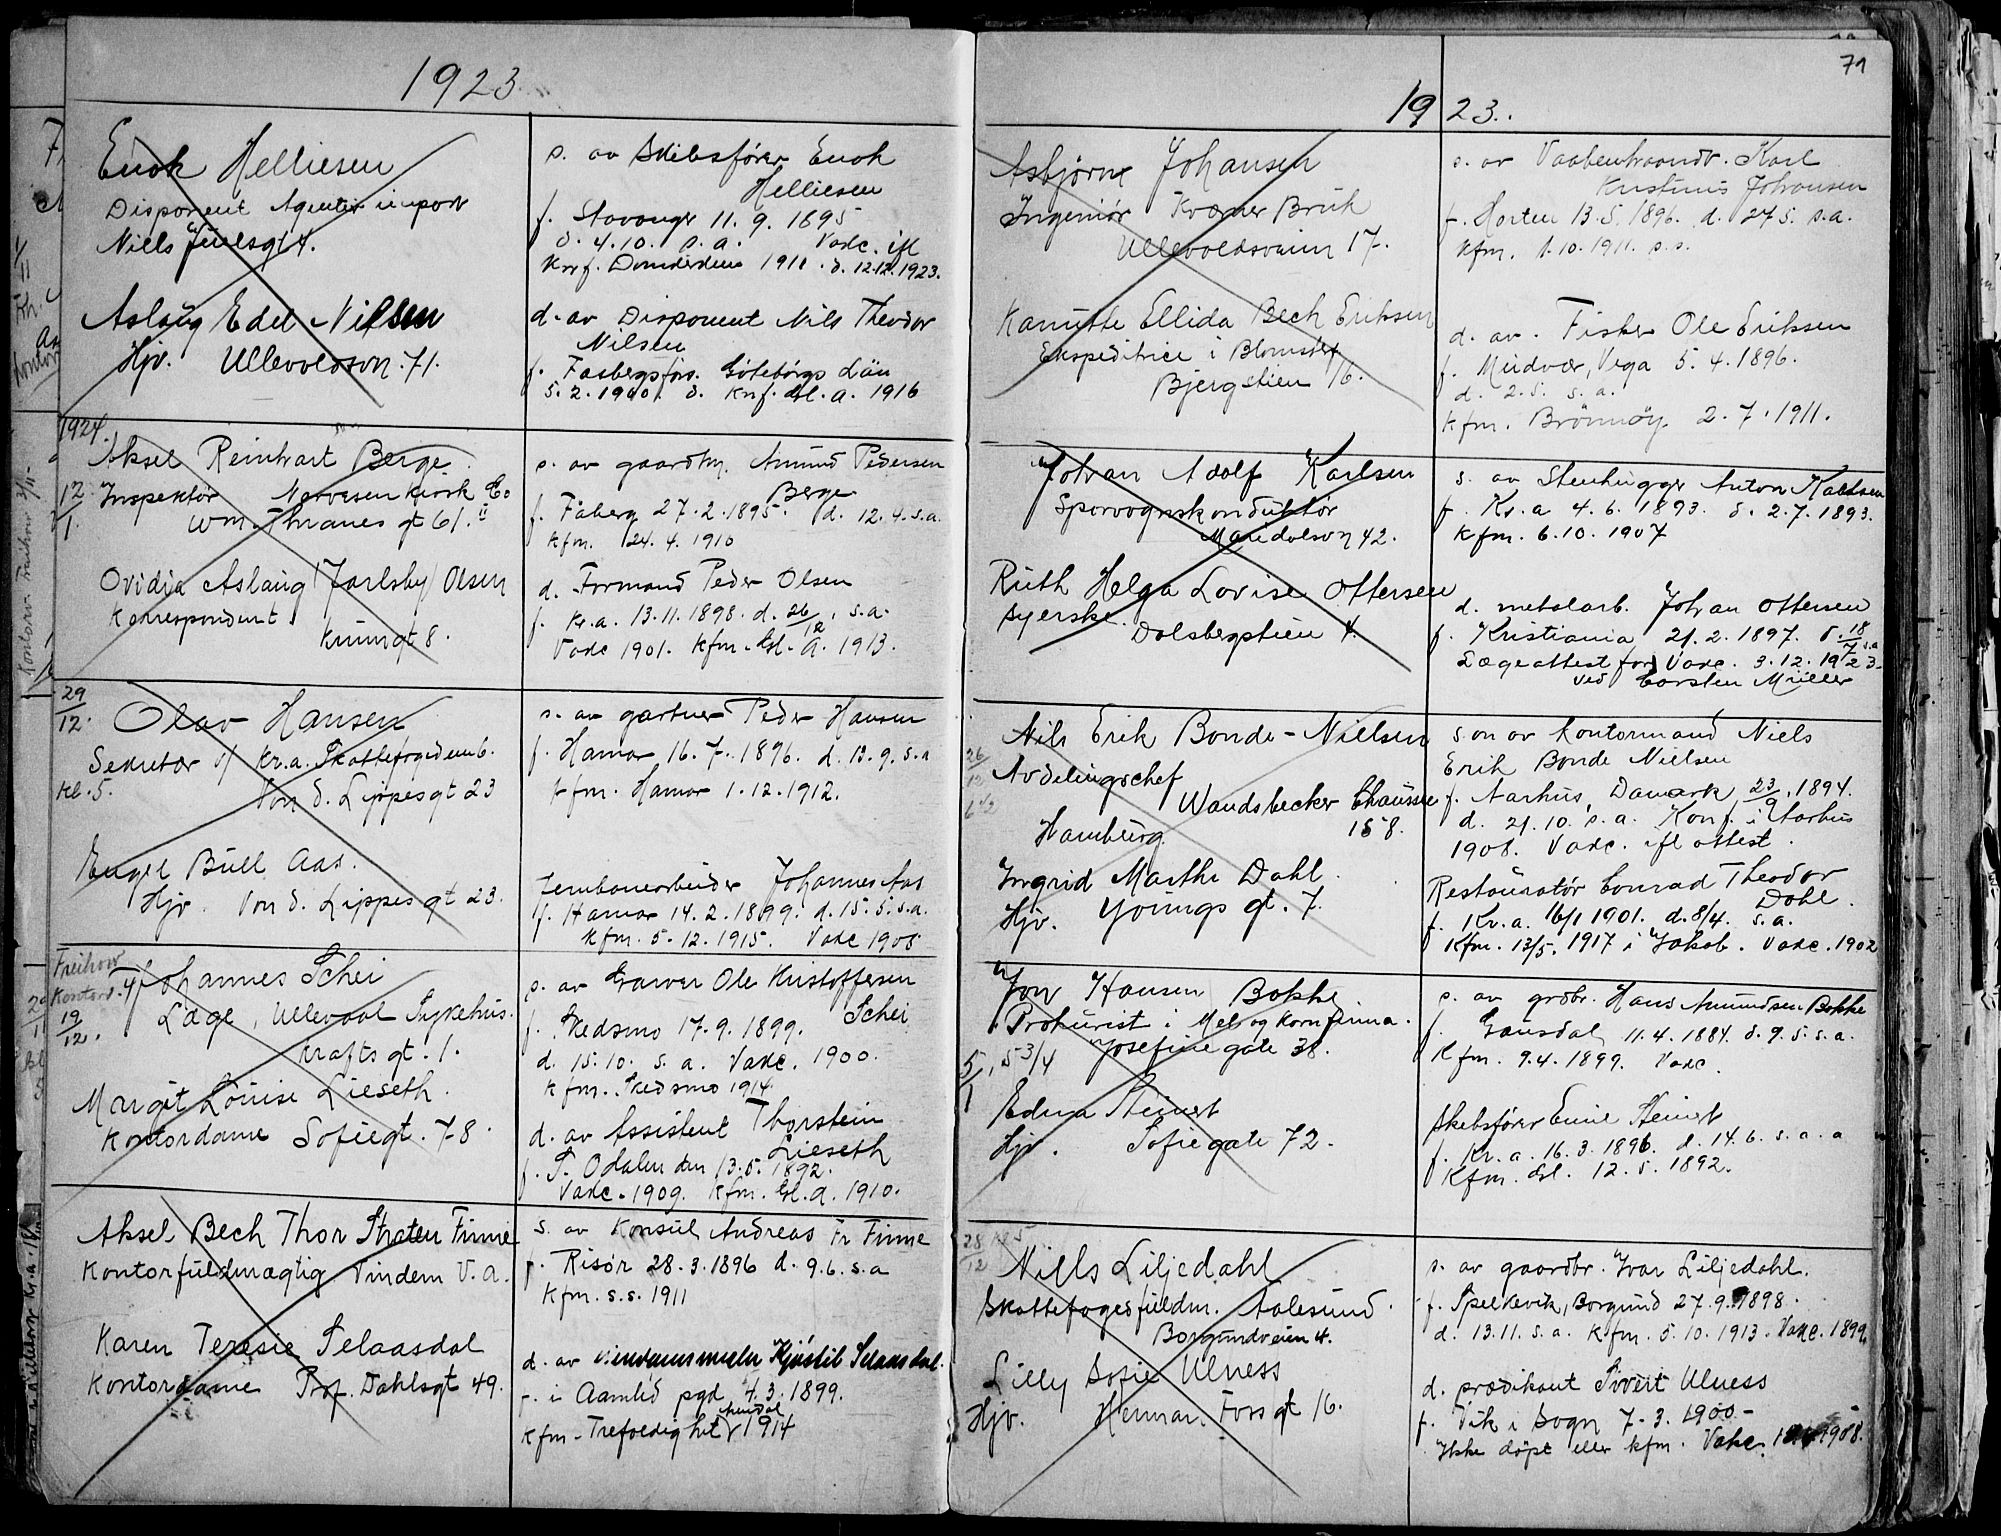 1923.
Enok Helliesen
Disponent Agentur import
Niels Juelsgt 4.
s. av Skibsfører Enok
Helliesen
f. Stavanger 11. 9. 1895
d. 4.10. s.a. Vakc. ifl
Knf. Domkirken 1911. d. 12.12.1923.
Aslaug Edel Nilsen
Hjv. Ullevoldsvn. 71.
d. av Disponent Nils Theodor
Nilsen
f. Göteborgs Län
5. 2. 1900. d. Knf. Gl. A. 1916
1924.
12/1.
Aksel Reinhart Berge.
Inspektør Narvesen Kiosk Co
Wm. Thranes gt 61. II
s. av gaardbr. Amund Pedersen
Berge
f. Faberg 27. 2. 1895. d. 12. 4. s.a.
kfm. 24. 4. 1910
Ovidia Aslaug /Jarlsby/ Olsen
Korrespondent
Krumgt 8.
d. Formand Peder Olsen
f. Kr.a. 13.11. 1898. d. 26/12. s.a.
Vakc 1901. kfm. Gl. A. 1913.
29/12.
Kl. 5.
Olav Hansen
Sekretær v/ Kr.a. Skattefogedemb.
Von d. Lippes gt 23
s. av gartner Peder Hansen
f. Hamar 16. 7. 1896. d. 13. 9. s.a
kfm. Hamar 1. 12. 1912.
Engel Bull Aas.
Hjv. Von d. Lippes gt 23.
Jernbanearbeider Johannes Aas
f. Hamar 14. 2. 1899. d. 15. 5. s.a.
kfm. 5. 12. 1915. Vakc 1908
19/12.
Johannes Schei
Læge, Ullevaal Sykehus.
Krafts gt. 1.
s. av Garver Ole Kristoffersen
Schei
f. Skedsmo 17. 9. 1899.
d. 15. 10. s. a. Vakc. 1900.
kfm. Skedsmo 1914.
Margit Louise Lieseth.
Kontordame Sofiegt. 78.
d. av Assistent Thorstein
Lieseth
f. S. Odalen den 13. 5. 1892.
Vakc. 1909. kfm. Gl. A. 1910.
Aksel Bech Thor Straten Finne
Kontorfuldmægtig Vindern V. a.
s. av Konsul Andreas Fr Finne
f. Risør 28. 3. 1896 d. 9. 6. s. a
Kfm. s. s. 1911
Karen Teresie Selaasdal
Kontordame Prof. Dahlsgt 49.
d. av Kjøstil Selaasdal.
f. i Aamlid pgd 4. 3. 1899.
kfm. Trefoldighet Arendal 1914
71
1923.
Asbjørn Johansen
Ingeniør Kværner Bruk
Ullevoldsveien 17.
s. av Karl
Kristinus Johansen
f. Horten 13. 5. 1896. d. 27 5. s.a.
kfm. 1. 10. 1911. s. s.
Kanutte Ellida Bech Eriksen
Ekspeditrice i Blomsterf
Bjergstien 16.
d. av. Fisker Ole Eriksen
f. Mudvær, Vega 5. 4. 1896.
d. 2. 5. s. a.
kfm. Brønnøy 2. 7. 1911.
Johan Adolf Karlsen
Sporvognskonduktør
Maridalsvn 42.
s. av Stenhugger Anton Karlsen
f. Kr.a 4. 6. 1893. d. 2. 7. 1893.
kfm. 6. 10. 1907
Ruth Helga Lovise Ottersen
Syerske. Dalsbergstien 4.
d. metalarb. Johan Ottersen
f. Kristiania 21. 2. 1897. d. 18/7 s.a
Lægeattest for Vakc. 3. 12. 1923.
ved Carsten Müller
Nils Erik Bonde-Nielsen
Avdelingschef
Wandsbecker Chaussee
Hamburg. 158.
søn av Kontormand Niels
Erik Bonde Nielsen
f. Aarhus, Danmark 23/9. 1894.
d. 21. 10. s. a. Konf. i Aarhus
1908. Vakc. ifl attest.
Ingrid Marthe Dahl.
Hjv. Youngs gt. 7.
Restauratør Conrad Theodor
Dahl.
f. Kr.a. 16/1 1901. d. 8/4. s. a.
Kfm. 13/5. 1917 i Jakob. Vakc. 1902
5/1, 5 3/4
Jon Hansen Bokke.
Prokurist i Mel og Kornfirma.
Josefine gate 38.
s. av grdbr. Hans Amundsen Bokke
f. Gausdal 11. 4. 1884. d. 9. 5. s. a.
Kfm. 9. 4. 1899. Vakc.
Edna Steinert
Hjv. Sofie gate 72.
Skibsfører Emil Steinert
f. Kr. a. 16. 3. 1896. d. 14. 6. s. a. a
Kfm. Gl. 12. 5. 1892.
28/12
Nils Liljedahl
Skattefogedfuldm. Aalesund.
Borgundveien 4.
s. av gaardbr. Ivar Liljedahl.
f. Spelkevik, Borgund 27. 9. 1898.
d. 13. 11. s. a. Kfm. 5. 10. 1913. Vakc. 1899.
Lilly Sofie Ulness
Hjv. Herman Foss gt 16.
d. prædikant Sivert Ulness
f. Vik i Sogn 7. 3. 1900
Ikke døpt eller kfm. Vakc. 1908.